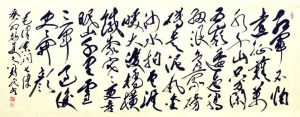 红军不怕
远征难万
水千山只等闲
五岭逶迤腾
细浪乌蒙磅
礴走泥丸金
沙水拍云崖
暖大渡桥横
铁索寒更喜
岷山千里雪
三军过后
尽开颜